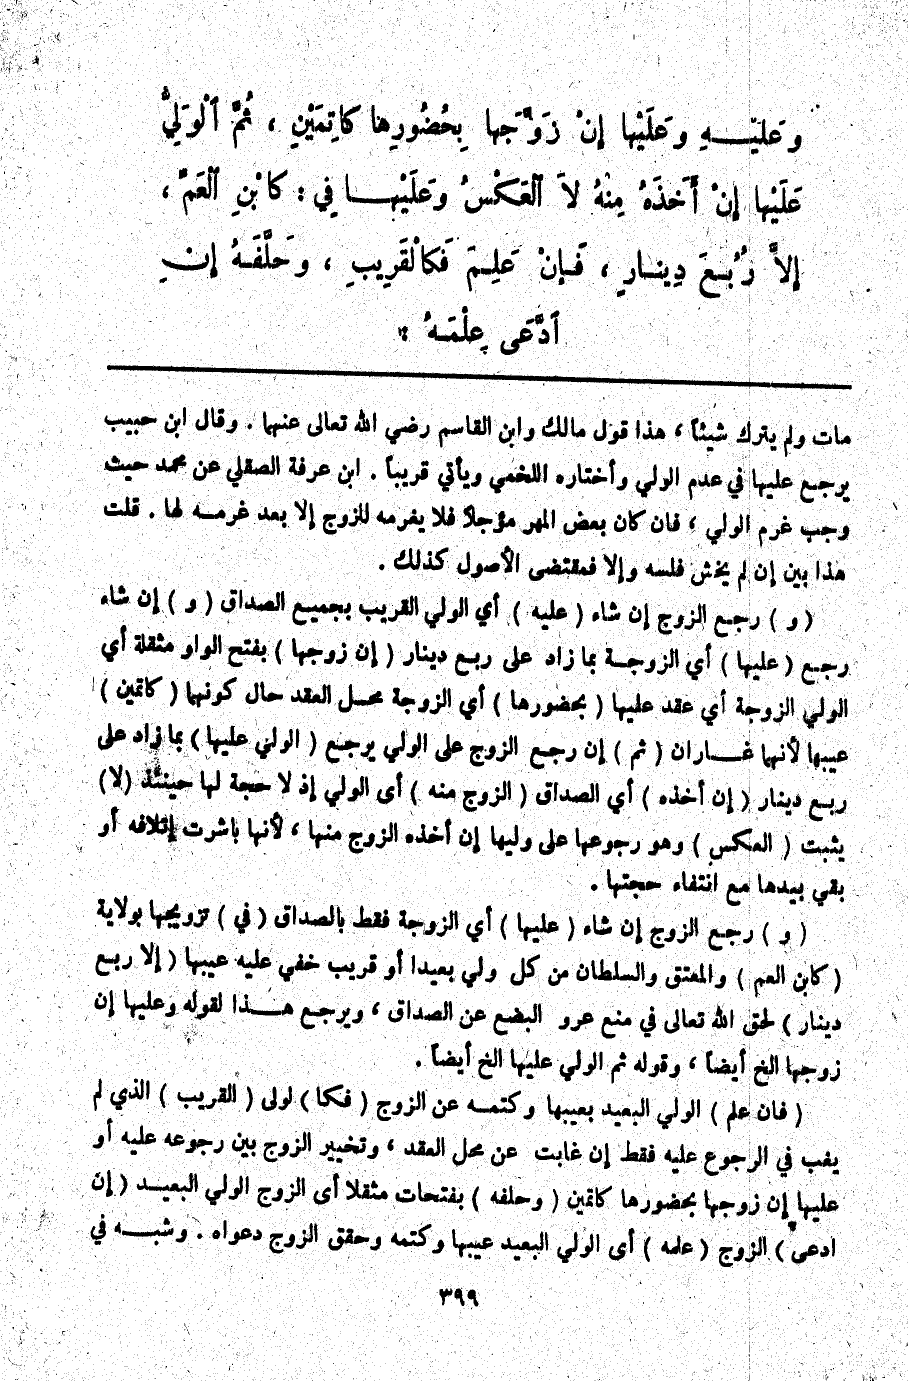 وَعَلَيْــهِ وعَلَيْها إِنْ زَوَّجَها بِحُضُورِها كاتِمَيْنِ ، ثُمَّ ٱلْوَلِيُّ
عَلَيْها إِنْ أَخَذَهُ مِنْهُ لاَ ٱلْعَكْسُ وعَلَيْهــا فِي : كابْنِ ٱلْعَمِّ ،
إِلاَّ رُبُـعَ دِينـارٍ ، فَـإنْ عَلِـمَ فَكالْقَرِيبِ ، وحَلَّفَـهُ إنِ
ٱدَّعَى عِلْمَـهُ ؛
مات ولم يترك شيئاً ، هذا قول مالك وابن القاسم رضي الله تعالى عنهما . وقال ابن حبيب
يرجـع عليها في عدم الولي وأختاره اللخمي ويأتي قريباً . ابن عرفة الصقلي عن محمد حيث
وجب غرم الولي ، فان كان بعض المهر مؤجلاً فلا يغرمه للزوج إلا بعد غرمــه لها . قلت
هذا بين إن لم يخش فلسه وإلا فمقتضى الأصول كذلك .
( و ) رجـع الزوج إن شاء ( عليه ) أي الولي القريب بجميـع الصداق ( و ) إن شاء
رجـع ( عليها ) أي الزوجــة بما زاد على ربـع دينار ( إن زوجها ) بفتح الواو مثقلة أي
الولي الزوجة أي عقد عليها ( بحضورها ) أي الزوجة محــل العقد حال كونهما ( كاتمين )
عيبها لأنهما غــــاران ( ثم ) إن رجـع الزوج على الولي يرجـع ( الولي عليها ) بما زاد على
ربـع دينار ( إن أخذه ) أي الصداق ( الزوج منه ) أى الولي إذ لا حجة لها حينئذ (لا)
يثبت ( العكس ) وهو رجوعها على وليها إن أخذه الزوج منها ، لأنها باشرت إتلافه أو
بقي بيدها مع انتفاء حجتها .
( و ) رجـع الزوج إن شاء ( عليها ) أي الزوجة فقط بالصداق ( في ) تزويجها بولاية
( كابن العم ) والمعتق والسلطان من كل ولي بعيدا أو قريب خفي عليه عيبها ( إلا ربـع
دينار ) لحق الله تعالى في منع عرو البضـع عن الصداق ، ويرجـع هــــذا لقوله وعليها إن
زوجها الخ أيضاً ، وقوله ثم الولي عليها الخ أيضاً .
( فان علم ) الولي البعيد بعيبها وكتمــه عن الزوج ( فـكا ) لولى ( القريب ) الذي لم
يغب في الرجوع عليه فقط إن غابت عن محل العقد ، وتخيير الزوج بين رجوعه عليه أو
عليها إن زوجها بحضورها كاتمين ( وحلفه ) بفتحات مثقلا أى الزوج الولي البعيــد ( إن
ادعى ) الزوج ( علمه ) أى الولي البعيد عيبها وكتمه وحقق الزوج دعواه . وشبـــه في
٣٩٩